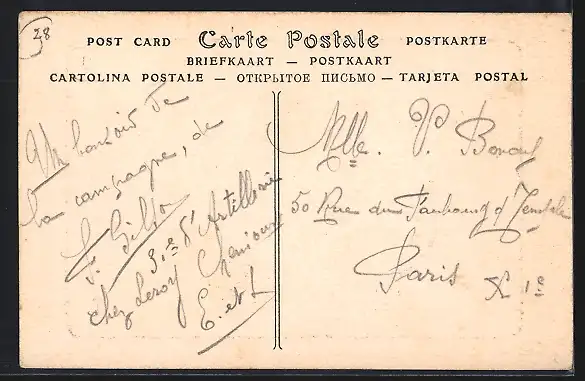 28
POST CARD Carte Postale POSTKARTE
BRIEFKAART — POSTKAART
CARTOLINA POSTALE — ОТКРЫТОЕ ПИСЬМО — TARJETA POSTAL
Un bonsoir de
la campagne, de
31e d'Artillerie
chez Leroy
E. et L
Mlle. P.
50 Rue du Faubourg d Temple
Paris X 1e